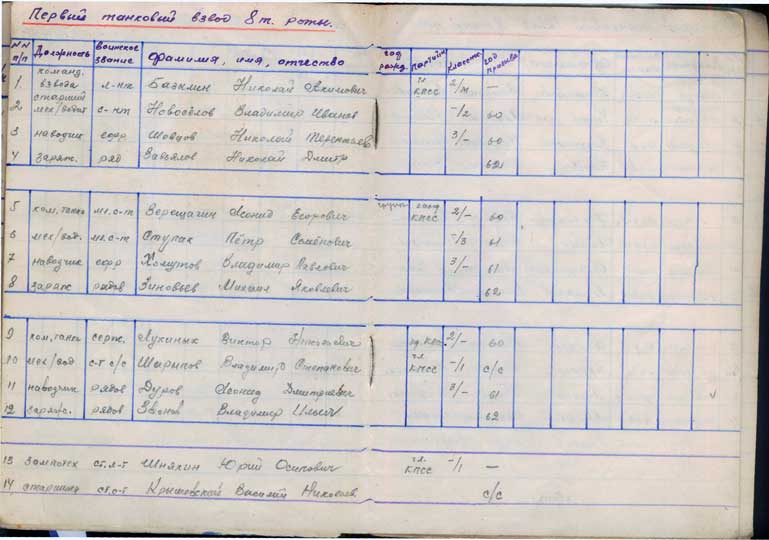 Первый танковый взвод 8 т. роты.
NN п/п Должность воинское звание Фамилия, имя, отчество год рожд. Партийн. классн. год призыва
1 команд. взвода л-нт Николай Акимович чл. КПСС 2/м —
2 старший мех/водит с-нт Новосёлов Владимир Иванов -/2 60
3 наводчик ефр Шовцов Николай Терентьев 3/- 60
4 заряж. ряд Завьялов Николай Дмитр 62
5 ком. танка мл. с-т Верещагин Леонид Егорович канд КПСС 2/- 60
6 мех/вод. мл. с-т Ступак Пётр Семёнович -/3 61
7 наводчик ефр Хомутов Владимир Павлович 3/- 61
8 заряж рядов Зиновьев Михаил Яковлевич 62
9 ком. танка серж. Лукиных Виктор Николаевич 2/- 60
10 мех/вод с-т с/с Шарыпов Владимир Степанович чл. КПСС -/1 с/с
11 наводчик рядов Дуров Леонид Дмитриевич 3/- 61
12 заряж. рядов Званов Владимир Ильич 62
13 зампотех ст. л-т Шнякин Юрий Осипович чл. КПСС -/1 —
14 старшина ст. с-т Крышевский Василий Николаев с/с